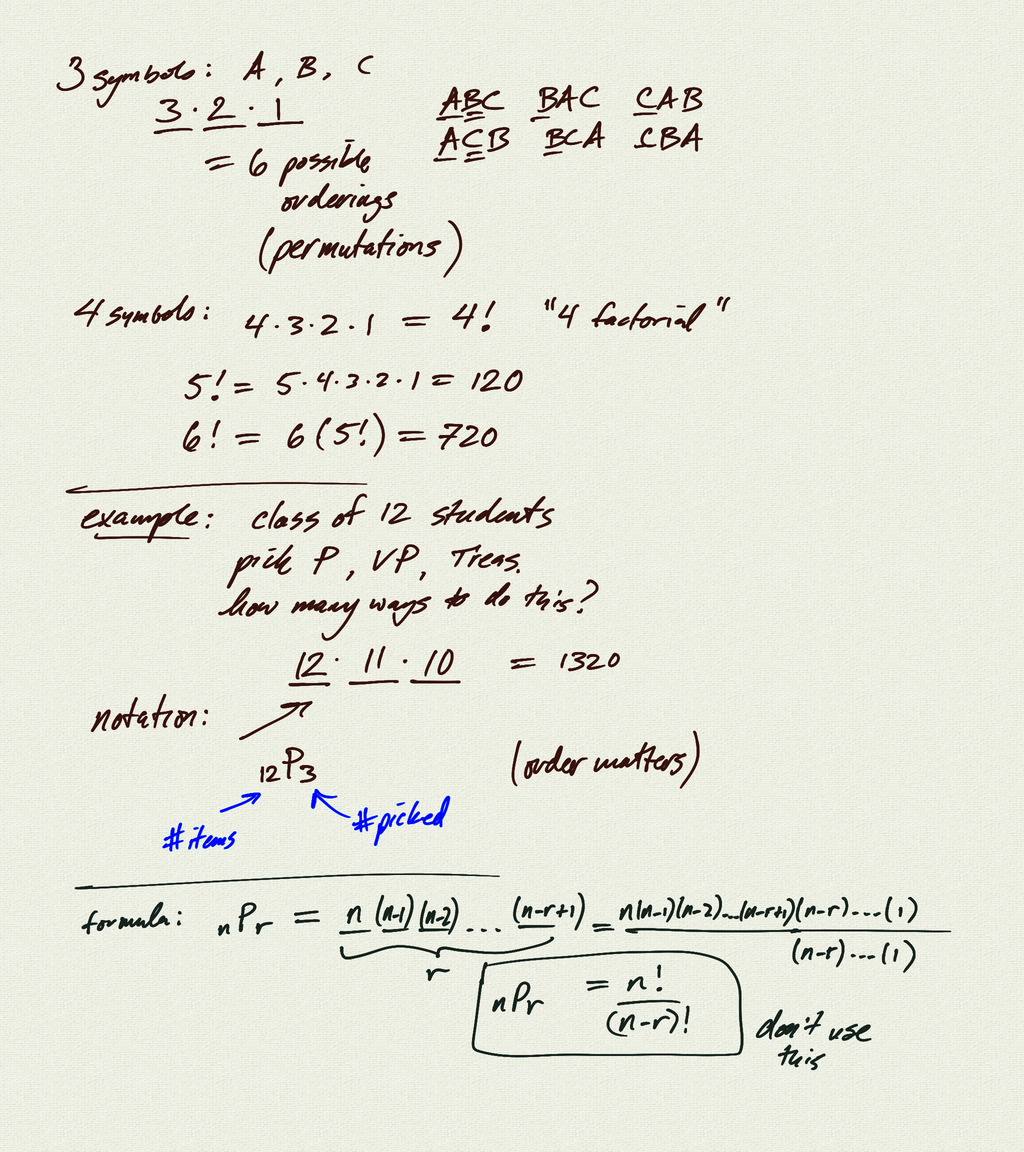 3 symbols: A, B, C
3 · 2 · 1
= 6 possible
orderings
(permutations)
ABC BAC CAB
ACB BCA CBA
4 symbols: 4·3·2·1 = 4! "4 factorial"
5! = 5·4·3·2·1 = 120
6! = 6(5!) = 720
example: class of 12 students
pick P, VP, Treas.
how many ways to do this?
12 · 11 · 10 = 1320
notation:
₁₂P₃ (order matters)
#items #picked
formula: ₙPᵣ = n (n-1)(n-2) ... (n-r+1) = n(n-1)(n-2)...(n-r+1)(n-r)...(1)
(n-r)...(1)
r
nPr = n!
(n-r)!
don't use
this